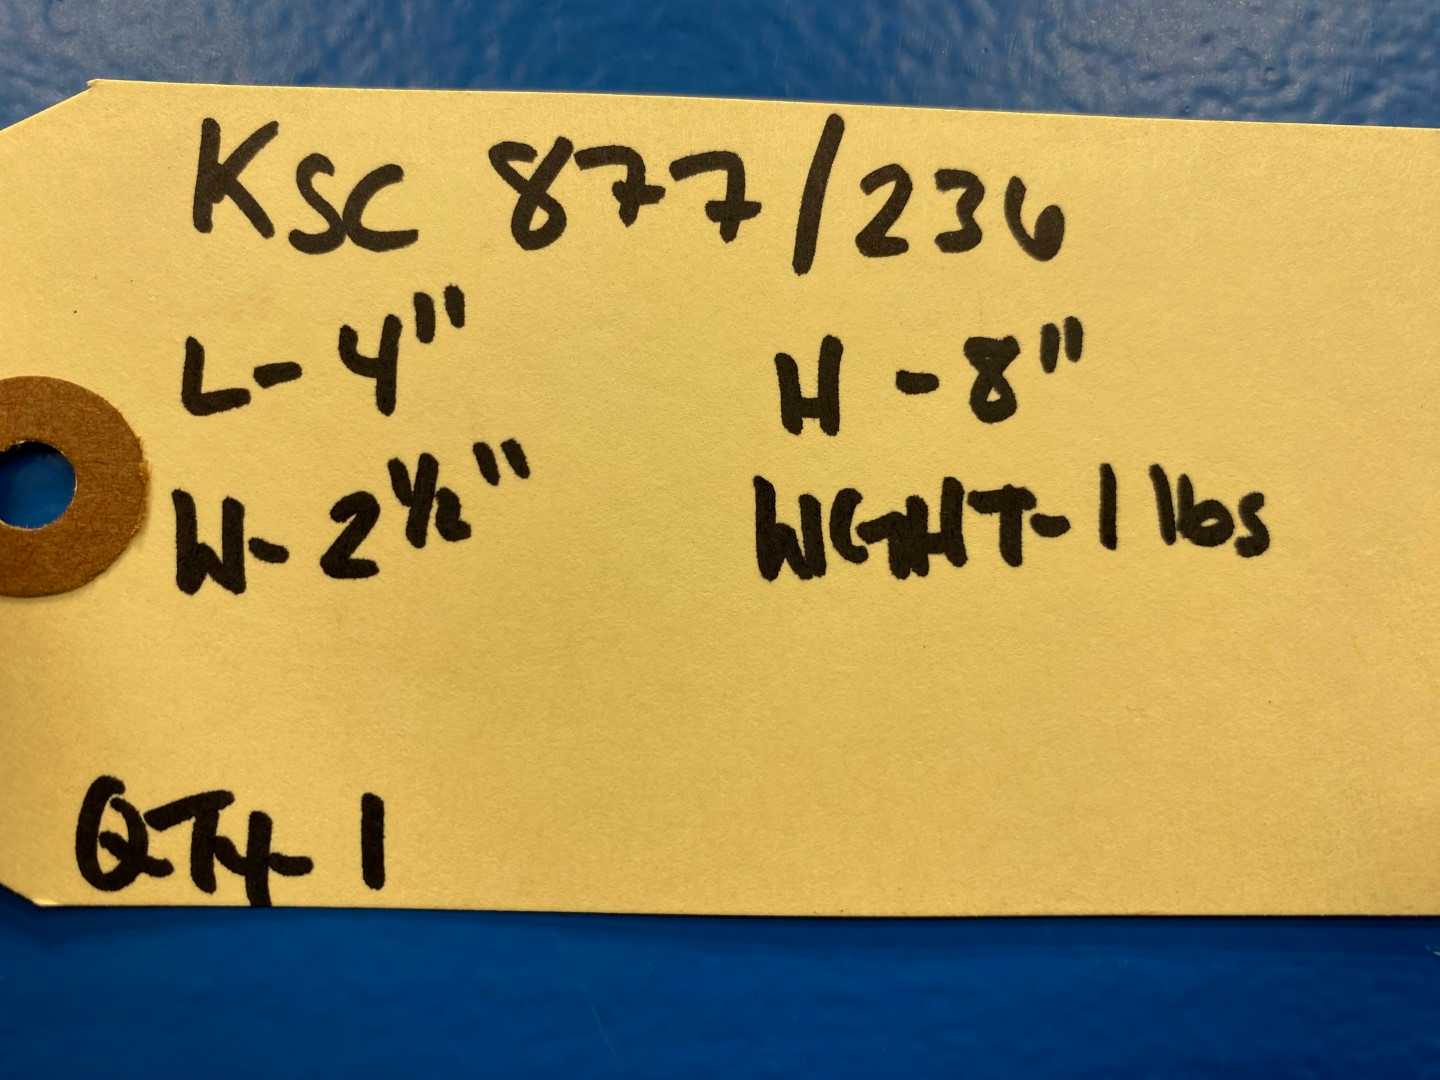 KSC 877/236
L-4" H-8"
W-2½" WGHT-1 lbs
QTY-1